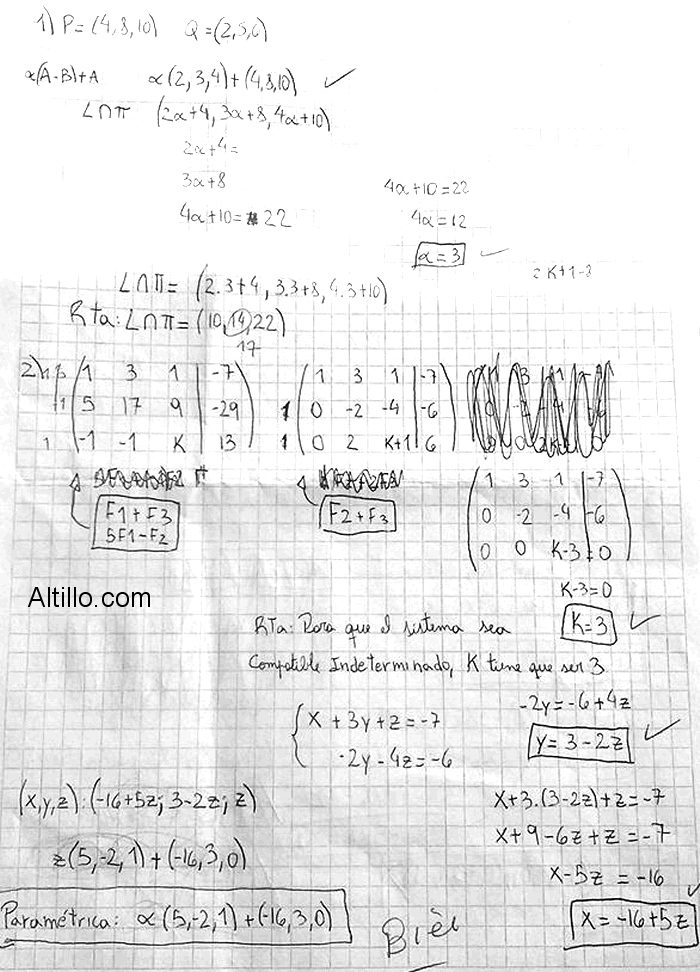 1) P = (4,8,10) Q = (2,5,6)
α(A-B)+A α(2,3,4)+(4,8,10) ✓
L∩π (2α+4, 3α+8, 4α+10)
2α+4=
3α+8
4α+10= 22
4α+10=22
4α=12
α=3 ✓
2K+1-8
L∩π= (2.3+4, 3.3+8, 4.3+10)
Rta: L∩π = (10,14,22)
17
2)
( 1 3 1 | -7 )
( 5 17 9 | -29 )
( -1 -1 K | 13 )
F1+F3
5F1-F2
( 1 3 1 | -7 )
1 ( 0 -2 -4 | -6 )
1 ( 0 2 K+1 | 6 )
F2+F3
( 1 3 1 | -7 )
( 0 -2 -4 | -6 )
( 0 0 K-3 | 0 )
K-3=0
K=3 ✓
Altillo.com
Rta: Para que el sistema sea
Compatible Indeterminado, K tiene que ser 3
{ X + 3y + z = -7
-2y - 4z = -6
-2y = -6+4z
y = 3-2z ✓
X+3.(3-2z)+z=-7
X+9-6z+z=-7
X-5z = -16
X = -16+5z ✓
(x,y,z): (-16+5z; 3-2z; z)
z(5,-2,1)+(-16,3,0)
Paramétrica: α(5,-2,1)+(-16,3,0)